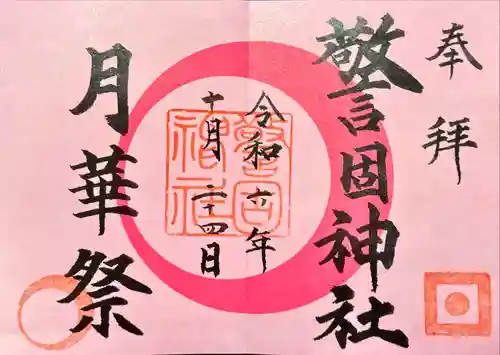 奉拝
警固神社
令和六年
十月二十四日
月華祭
警固
神社